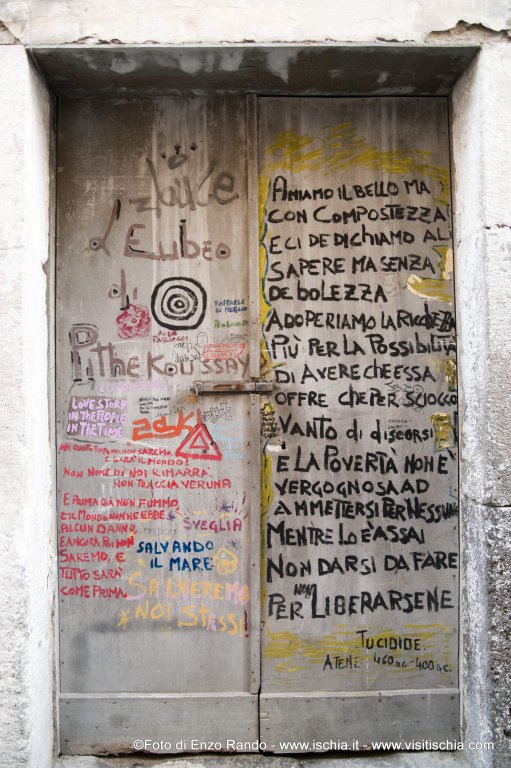 L'Eubeo
di
Pithekoussay
LOVE STORY
IN THE PEOPLE
IN THE TIME
E SARÀ IL MONDO!
NON NOME DI NOI RIMARRÀ,
NON TRACCIA VERUNA
E PRIMA GIÀ NON FUMMO
E IL MONDO NON NE EBBE
ALCUN DANNO,
E ANCORA POI NON
SAREMO, E
TUTTO SARÀ
COME PRIMA.
SVEGLIA
SALVANDO
IL MARE
SALVEREMO
NOI STESSI!
AMIAMO IL BELLO MA
CON COMPOSTEZZA
E CI DEDICHIAMO AL
SAPERE MA SENZA
DEBOLEZZA
ADOPERIAMO LA RICCHEZZA
PIÙ PER LA POSSIBILITÀ
DI AVERE CHE ESSA
OFFRE CHE PER SCIOCCO
VANTO DI DISCORSI
E LA POVERTÀ NON È
VERGOGNOSA AD
AMMETTERSI PER NESSUNO
MENTRE LO È ASSAI
NON DARSI DA FARE
NON
PER LIBERARSENE
TUCIDIDE.
ATENE 460 a.c. - 400 a.c.
©Foto di Enzo Rando - www.ischia.it - www.visitischia.com